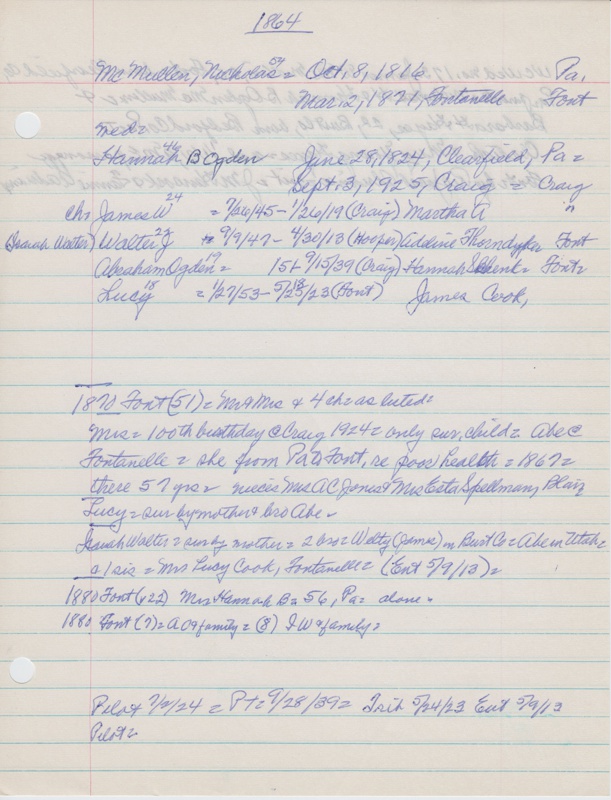 1864
McMullen, Nicholas 54 = Oct. 8, 1816 Pa,
Mar. 2, 1871, Fontanelle Font
med =
Hannah 46 B Ogden June 28, 1824, Clearfield, Pa =
Sept. 3, 1925, Craig = Craig
Ch = James W 24 = 7/26/45 - 1/26/19 (Craig) Martha A "
(Isaiah Walter) Walter J 23 = 9/9/47 - 4/30/13 (Hooper) Addine Thorndyke Font
Abraham Ogden 19 = 15+ 9/15/39 (Craig) Hannah Schenk = Font =
Lucy 18 = 1/27/53 - 5/23/23 (Font) James Cook,
1870 Font (51) = Mr & Mrs & 4 ch = as listed =
Mrs = 100th birthday @ Craig 1924 = only sur. child = Abe @
Fontanelle = she from Pa to Font, re poor health = 1867 =
there 57 yrs = nieces Mrs A C Jones & Mrs Esta Spellman, Blair
Lucy = sur by mother & bro Abe =
Isaiah Walter = sur by mother = 2 bro = Welty (James) in Burt Co = Abe in Utah =
& 1 sis = Mrs Lucy Cook, Fontanelle = (Ent 5/9/13) =
1880 Font (v22) Mrs Hannah B = 56, Pa = alone =
1880 Font (7) = A O & family = (8) I W & family =
Pilot 7/2/24 = PT = 9/28/39 = Trib 5/24/23 Ent 5/9/13
Pilot =